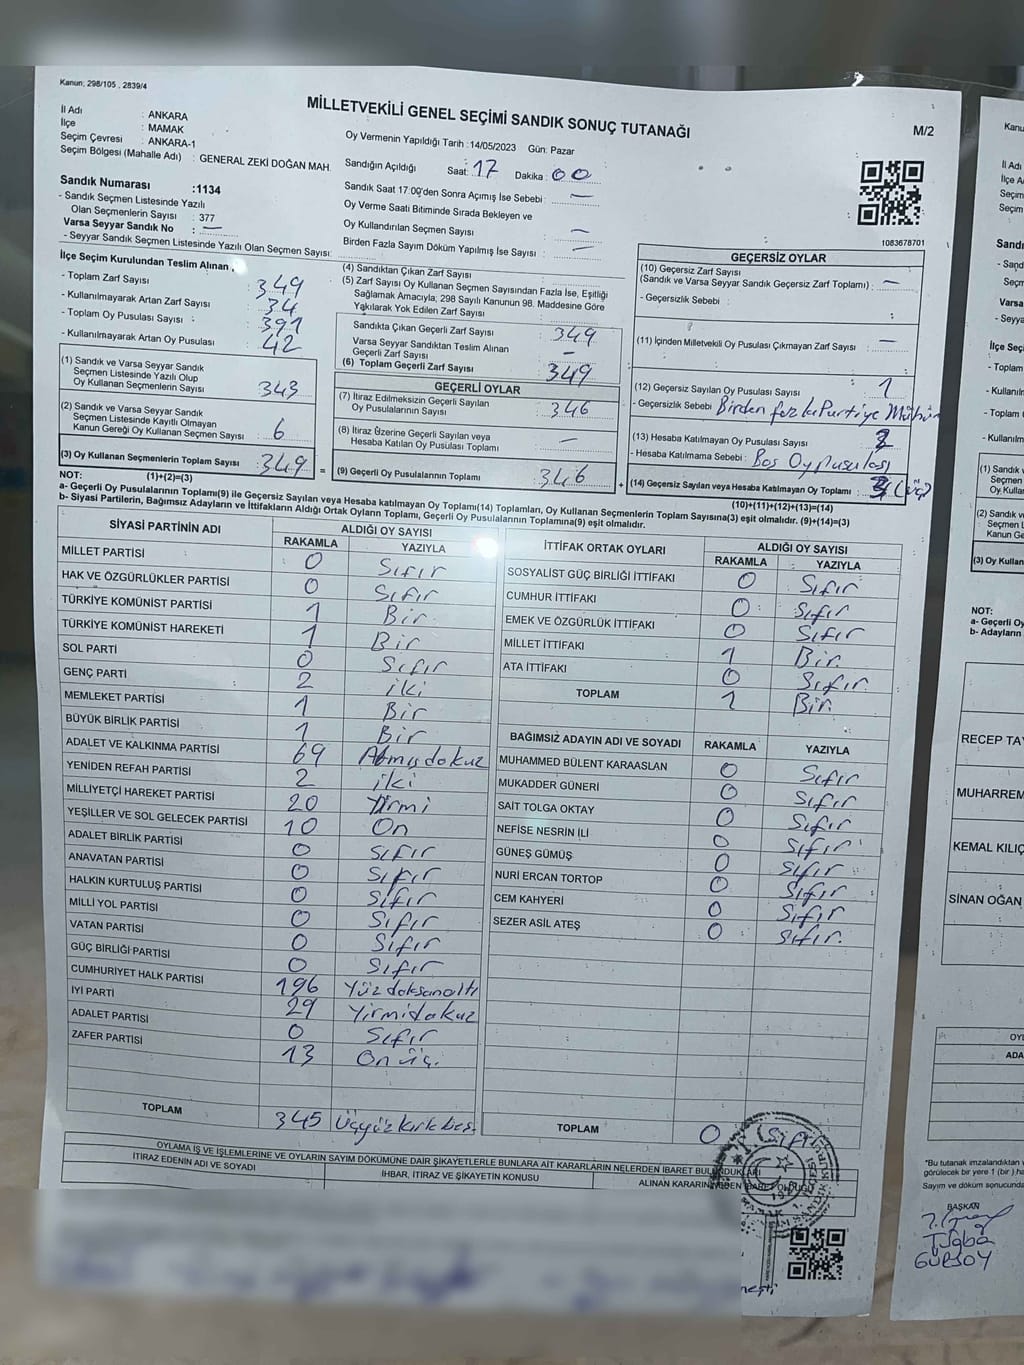 Kanun; 298/105 , 2839/4
MİLLETVEKİLİ GENEL SEÇİMİ SANDIK SONUÇ TUTANAĞI
M/2
İl Adı : ANKARA
İlçe : MAMAK
Seçim Çevresi : ANKARA-1
Seçim Bölgesi (Mahalle Adı) : GENERAL ZEKİ DOĞAN MAH.
Sandık Numarası :1134
- Sandık Seçmen Listesinde Yazılı
Olan Seçmenlerin Sayısı : 377
Varsa Seyyar Sandık No : —
- Seyyar Sandık Seçmen Listesinde Yazılı Olan Seçmen Sayısı:
Oy Vermenin Yapıldığı Tarih :14/05/2023 Gün: Pazar
Sandığın Açıldığı Saat: 17 Dakika : 00
Sandık Saat 17:00'den Sonra Açımış İse Sebebi : —
Oy Verme Saati Bitiminde Sırada Bekleyen ve
Oy Kullandırılan Seçmen Sayısı : —
Birden Fazla Sayım Döküm Yapılmış İse Sayısı : —
1083678701
İlçe Seçim Kurulundan Teslim Alınan
- Toplam Zarf Sayısı : 349
- Kullanılmayarak Artan Zarf Sayısı : 34
- Toplam Oy Pusulası Sayısı : 391
- Kullanılmayarak Artan Oy Pusulası : 42
(1) Sandık ve Varsa Seyyar Sandık
Seçmen Listesinde Yazılı Olup
Oy Kullanan Seçmenlerin Sayısı : 343
(2) Sandık ve Varsa Seyyar Sandık
Seçmen Listesinde Kayıtlı Olmayan
Kanun Gereği Oy Kullanan Seçmen Sayısı : 6
(3) Oy Kullanan Seçmenlerin Toplam Sayısı : 349 =
(1)+(2)=(3)
(4) Sandıktan Çıkan Zarf Sayısı
(5) Zarf Sayısı Oy Kullanan Seçmen Sayısından Fazla İse, Eşitliği
Sağlamak Amacıyla; 298 Sayılı Kanunun 98. Maddesine Göre
Yakılarak Yok Edilen Zarf Sayısı :
Sandıkta Çıkan Geçerli Zarf Sayısı : 349
Varsa Seyyar Sandıktan Teslim Alınan
Geçerli Zarf Sayısı : —
(6) Toplam Geçerli Zarf Sayısı : 349
GEÇERLİ OYLAR
(7) İtiraz Edilmeksizin Geçerli Sayılan
Oy Pusulalarının Sayısı : 346
(8) İtiraz Üzerine Geçerli Sayılan veya
Hesaba Katılan Oy Pusulası Toplamı : —
(9) Geçerli Oy Pusulalarının Toplamı : 346 +
GEÇERSİZ OYLAR
(10) Geçersiz Zarf Sayısı
(Sandık ve Varsa Seyyar Sandık Geçersiz Zarf Toplamı) : —
- Geçersizlik Sebebi :
(11) İçinden Milletvekili Oy Pusulası Çıkmayan Zarf Sayısı : —
(12) Geçersiz Sayılan Oy Pusulası Sayısı : 1
- Geçersizlik Sebebi : Birden fazla Partiye Mühür
(13) Hesaba Katılmayan Oy Pusulası Sayısı : 2
- Hesaba Katılmama Sebebi : Boş Oy pusulası
(14) Geçersiz Sayılan veya Hesaba Katılmayan Oy Toplamı : 3 (üç)
(10)+(11)+(12)+(13)=(14)
NOT:
a- Geçerli Oy Pusulalarının Toplamı(9) ile Geçersiz Sayılan veya Hesaba katılmayan Oy Toplamı(14) Toplamları, Oy Kullanan Seçmenlerin Toplam Sayısına(3) eşit olmalıdır. (9)+(14)=(3)
b- Siyasi Partilerin, Bağımsız Adayların ve İttifakların Aldığı Ortak Oyların Toplamı, Geçerli Oy Pusulalarının Toplamına(9) eşit olmalıdır.
SİYASİ PARTİNİN ADI ALDIĞI OY SAYISI
RAKAMLA YAZIYLA
MİLLET PARTİSİ 0 Sıfır
HAK VE ÖZGÜRLÜKLER PARTİSİ 0 Sıfır
TÜRKİYE KOMÜNİST PARTİSİ 1 Bir
TÜRKİYE KOMÜNİST HAREKETİ 1 Bir
SOL PARTİ 0 Sıfır
GENÇ PARTİ 2 iki
MEMLEKET PARTİSİ 1 Bir
BÜYÜK BİRLİK PARTİSİ 1 Bir
ADALET VE KALKINMA PARTİSİ 69 Atmışdokuz
YENİDEN REFAH PARTİSİ 2 iki
MİLLİYETÇİ HAREKET PARTİSİ 20 Yirmi
YEŞİLLER VE SOL GELECEK PARTİSİ 10 On
ADALET BİRLİK PARTİSİ 0 Sıfır
ANAVATAN PARTİSİ 0 Sıfır
HALKIN KURTULUŞ PARTİSİ 0 Sıfır
MİLLİ YOL PARTİSİ 0 Sıfır
VATAN PARTİSİ 0 Sıfır
GÜÇ BİRLİĞİ PARTİSİ 0 Sıfır
CUMHURİYET HALK PARTİSİ 196 Yüzdoksanaltı
İYİ PARTİ 29 Yirmidokuz
ADALET PARTİSİ 0 Sıfır
ZAFER PARTİSİ 13 On üç.
TOPLAM 345 Üçyüzkırkbeş
İTTİFAK ORTAK OYLARI ALDIĞI OY SAYISI
RAKAMLA YAZIYLA
SOSYALİST GÜÇ BİRLİĞİ İTTİFAKI 0 Sıfır
CUMHUR İTTİFAKI 0 Sıfır
EMEK VE ÖZGÜRLÜK İTTİFAKI 0 Sıfır
MİLLET İTTİFAKI 1 Bir
ATA İTTİFAKI 0 Sıfır
TOPLAM 1 Bir
BAĞIMSIZ ADAYIN ADI VE SOYADI RAKAMLA YAZIYLA
MUHAMMED BÜLENT KARAASLAN 0 Sıfır
MUKADDER GÜNERİ 0 Sıfır
SAİT TOLGA OKTAY 0 Sıfır
NEFİSE NESRİN İLİ 0 Sıfır
GÜNEŞ GÜMÜŞ 0 Sıfır
NURİ ERCAN TORTOP 0 Sıfır
CEM KAHYERİ 0 Sıfır
SEZER ASİL ATEŞ 0 Sıfır
TOPLAM 0 (Sıfır)
OYLAMA İŞ VE İŞLEMLERİNE VE OYLARIN SAYIM DÖKÜMÜNE DAİR ŞİKAYETLERLE BUNLARA AİT KARARLARIN NELERDEN İBARET BULUNDUKLARI
İTİRAZ EDENİN ADI VE SOYADI İHBAR, İTİRAZ VE ŞİKAYETİN KONUSU ALINAN KARARIN NEDEN İBARET OLDUĞU
Kanu
İl Adı
İlçe A
Seçim
Seçim
Sandı
- Sand
Seçm
Varsa
- Seyya
İlçe Seçi
- Toplam
- Kullanıl
- Toplam
- Kullanılm
(1) Sandık
Seçmen
Oy Kulla
(2) Sandık v
Seçmen L
Kanun Ge
(3) Oy Kullan
NOT:
a- Geçerli Oy
b- Adayların
RECEP TA
MUHARREM
KEMAL KILIÇ
SİNAN OĞAN
OYL
ADA
"Bu tutanak imzalandıktan
görülecek bir yere 1 (bir )
Sayım ve döküm sonucunda
BAŞKAN
Tuğba
GÜRSOY